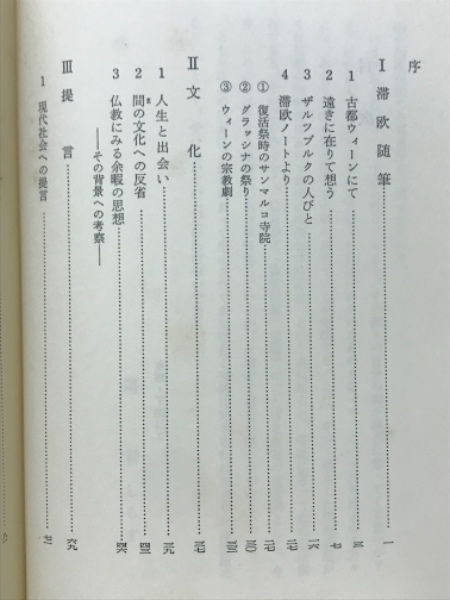 序
Ⅰ 滞欧随筆……一
1 古都ウィーンにて……三
2 遠きに在りて想う……七
3 ザルツブルクの人びと……一六
4 滞欧ノートより……二七
① 復活祭時のサンマルコ寺院……二七
② グラッシナの祭り……三〇
③ ウィーンの宗教劇……三三
Ⅱ 文化……三七
1 人生と出会い……三九
2 間の文化への反省……四三
3 仏教にみる余暇の思想……四六
——その背景への考察——
Ⅲ 提言……六九
1 現代社会への提言……七一